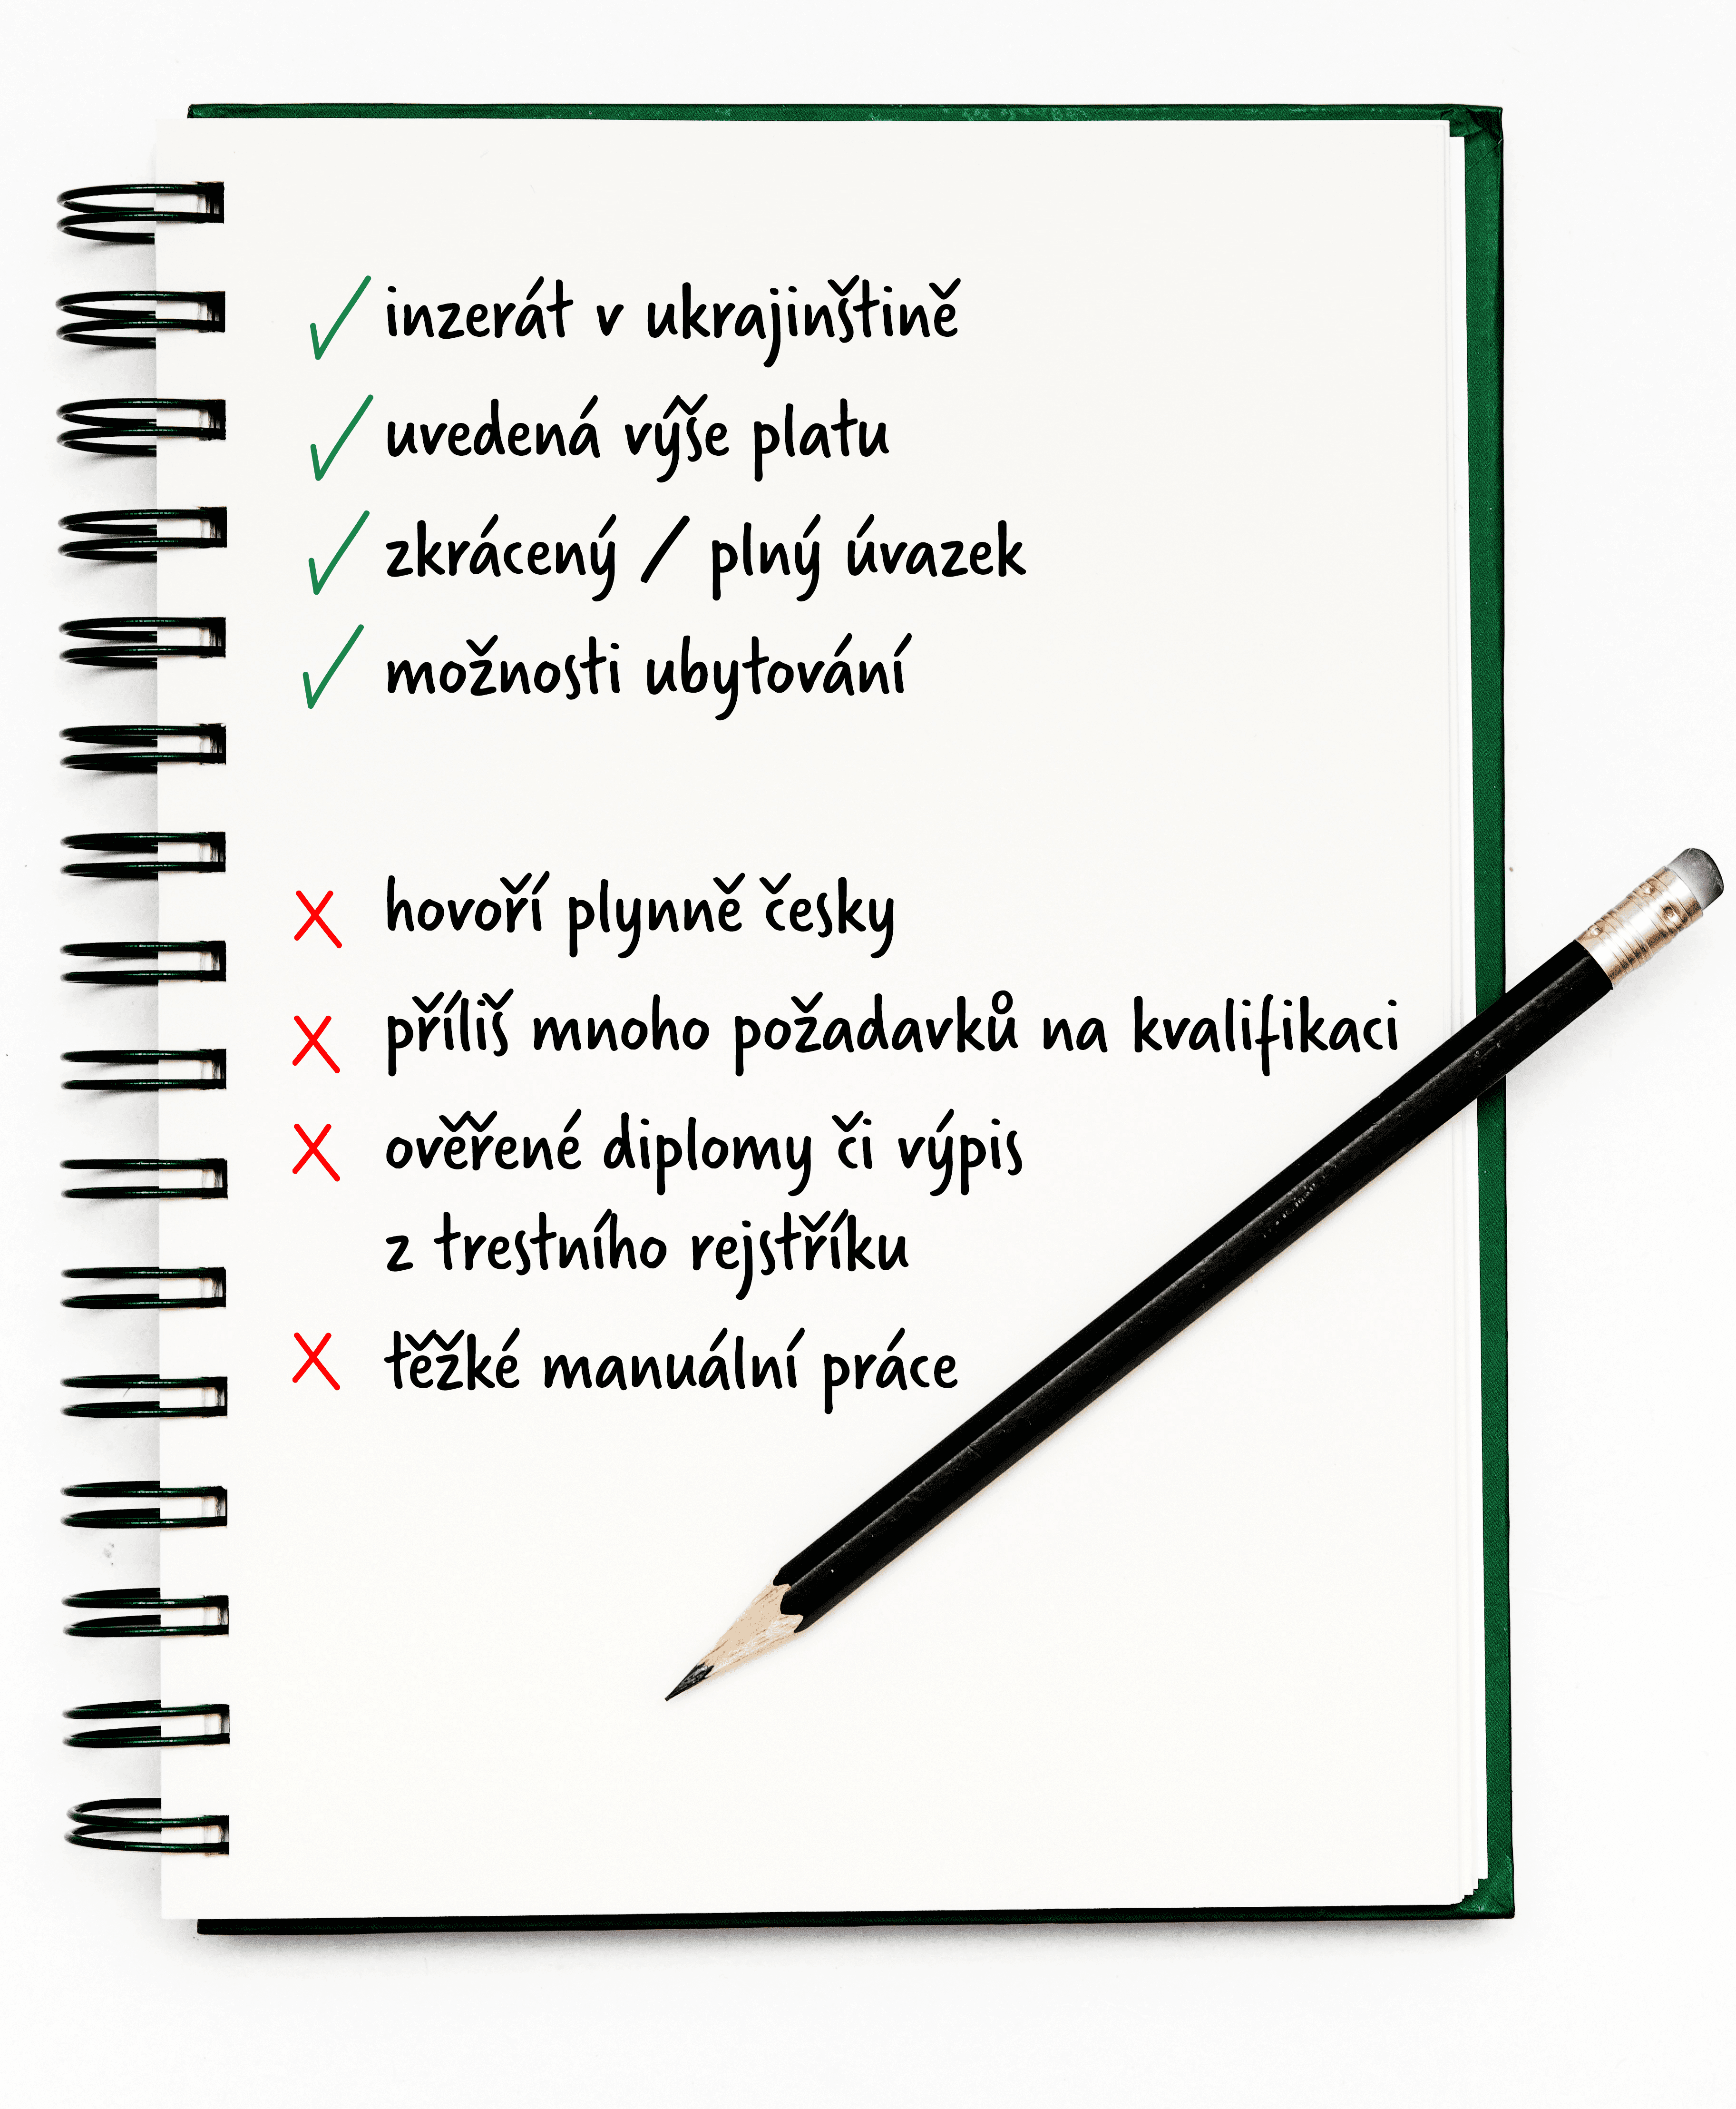 inzerát v ukrajinštině
uvedená výše platu
zkrácený / plný úvazek
možnosti ubytování
hovoří plynně česky
příliš mnoho požadavků na kvalifikaci
ověřené diplomy či výpis
z trestního rejstříku
těžké manuální práce